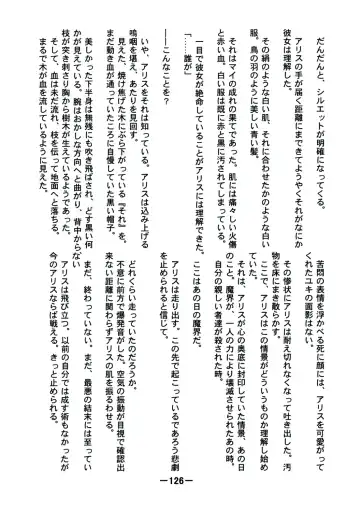 だんだんと、シルエットが明確になってくる。
アリスの手が届く距離にまできてようやくそれがなにか
彼女は理解した。
その絹のような白い肌、それに合わせたかのような白い
服。烏の羽のように美しい青い髪。
それはマイの成れの果てであった。肌には痛々しい火傷
と赤い血。白い服は既に赤と黒に汚されてしまっている。
一目で彼女が絶命していることがアリスには理解できた。
「……誰が」
――こんなことを？
いや、アリスをそれは知っている。アリスは込み上げる
嗚咽を堪え、あたりを見回す。
見えた。焼け焦げた木にぶら下がっている『それ』を、
まだ動き血が通っていたころに自慢していた黒い帽子。
美しかった下半身は無残にも吹き飛ばされ、どす黒い何
かが見えている。腕はおかしな方向へと曲がり、背中から
枝が突き刺さり胸から樹木が生えているようであった。
そして、血は未だ流れ、枝を伝って地面へと落ちる。
まるで木が血を流しているように見えた。
苦悶の表情を浮かべる死に顔には、アリスを可愛がって
くれたユキの面影はない。
その惨状にアリスは耐え切れなくなって吐き出した。汚
物を床にまき散らかす。
ここで、アリスはこの情景がどういうものか理解し始め
ていた。
それは、アリスが心の奥底に封印していた情景、あの日
のこと。魔界が、一人の力により壊滅させられたあの時。
自分の親しい者達が殺された時。
ここはあの日の魔界だ。
アリスは走り出す。この先で起こっているであろう悲劇
を止められると信じて。
どれくらい走っていたのだろうか。
不意に前方で爆発音がした。空気の振動が目視で確認出
来ない距離に関わらずアリスの肌を振るわせる。
まだ、終わっていない。まだ、最悪の結末には至ってい
ない。
アリスは飛び立つ。以前の自分では成す術もなかったが
今のアリスならば戦える。きっと止められる。
―126―